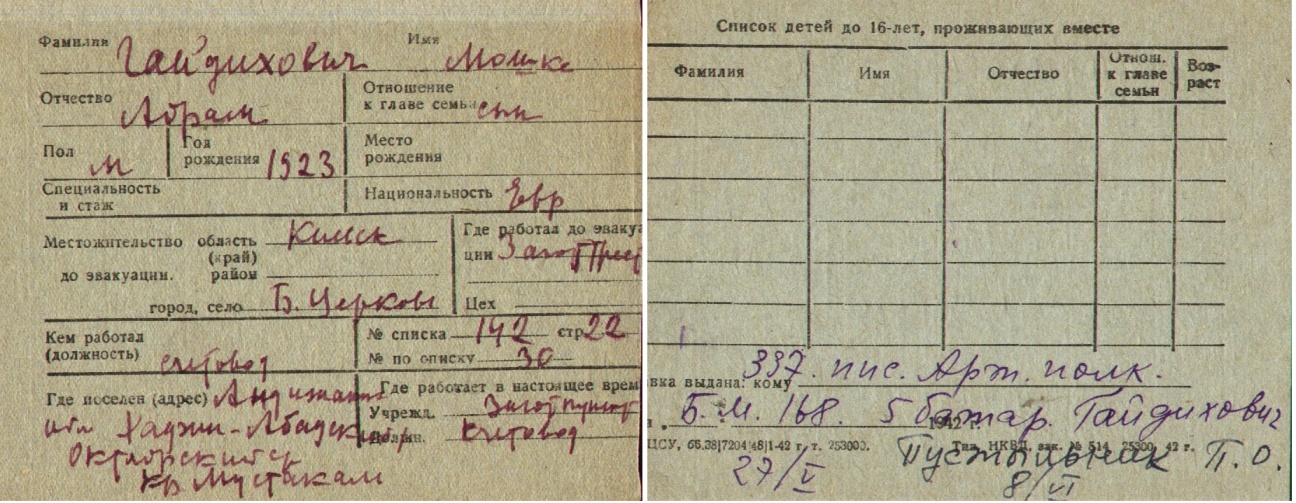 Фамилия Гайдихович Имя Мошке
Отчество Абрам Отношение к главе семьи сын
Пол м Год рождения 1923 Место рождения
Специальность и стаж Национальность Евр
Местожительство до эвакуации. область (край) Киевск Где работал до эвакуа
ции Загот
район
город, село Б. Церковь Цех
Кем работал (должность) счетовод № списка 142 стр 22
№ по списку 30
Где поселен (адрес) Андижанс Где работает в настоящее врем
обл Хаджи-Абадский Учрежд. Заготпункт
Должн. Счетовод
Октябрский
Мустакам
Список детей до 16-лет, проживающих вместе
Фамилия Имя Отчество Отнош. к главе семьи Воз-раст
337. Арт. полк.
вка выдана: кому
Б.М. 168. 5 батар. Гайдихович
1942 г.
ЦСУ, 66.38|7204|48|1-42 г. т. 253000. Тип. НКВД, зак. № 514 25300 42 г.
Пустыльник П.О.
27/V 8/VI